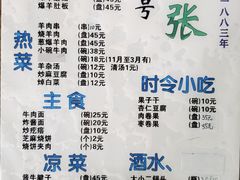 爆羊肚板 (盘)45元
号
张
一八八三年
热菜
羊肉串 (串)10元
烧羊肉 (盘)45元
葱爆羊肉 (盘)45元
小碗牛肉 (碗)30元
(碗)18元(11月至3月有)
羊杂汤 (碗)12元 清汤1元)
炒麻豆腐 (盘)30元
焯白菜 (盘)12元
主食
牛肉面 (碗)25元
炸酱面 (碗)20元
炒疙瘩 (盘)10元
芝麻烧饼 (个)2元
烧饼夹肉 (个)12元
时令小吃
果子干 (碗)10元
杏仁豆腐 (碗)10元
肉卷果 (盘)
枣卷果 (盘)
凉菜
酒水、